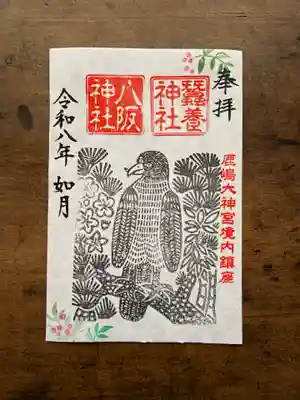 奉拝
蠶養神社
八阪神社
鹿嶋大神宮境内鎮座
令和八年 如月